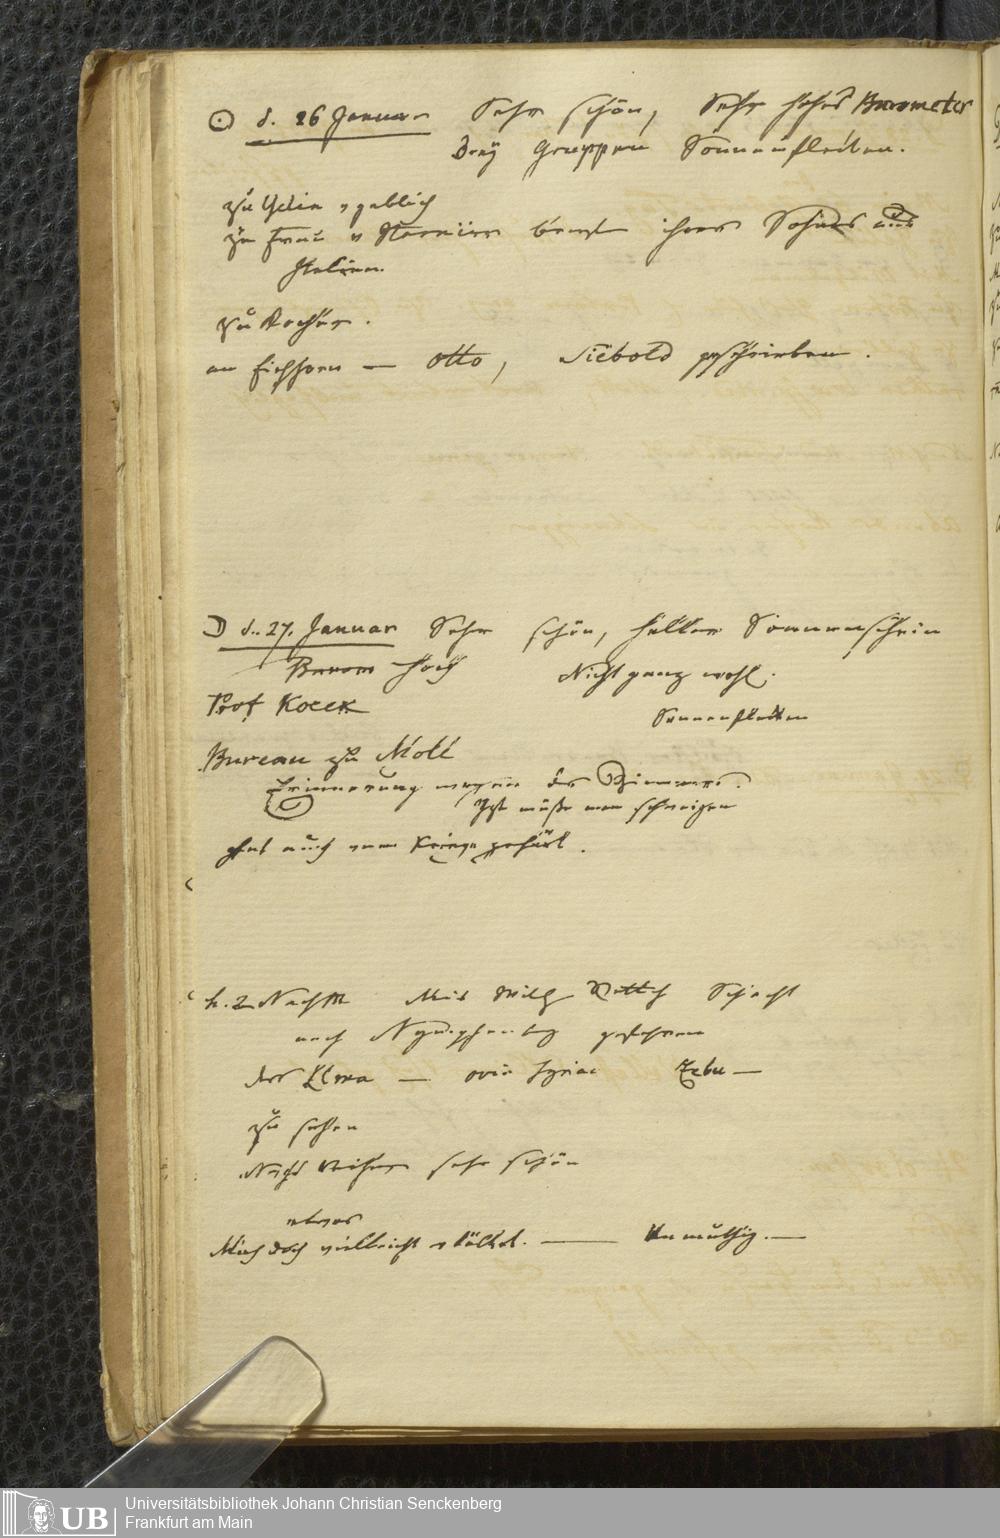 ☉ d. 26 Januar Sehr schön, Sehr hohes Barometer
Drey Gruppen Sonnenflecken.
zu vgeblich
zu Frau v ihres Sohnes aus
Italien.
zu Kocher.
an Eichhorn — Otto, Siebold geschrieben.
☽ d. 27. Januar Sehr schön, heller Sonnenschein
Barom hoch Nicht ganz wohl.
Prof Kocek
Sonnenflecken
Bureau zu Moll
Erinnerung wegen des Zimmers.
Izt müße man schweigen
auch vom Kriege gehört.
h. 2 Nachm Mit Wilh
nach Nymphenbg gefahren
das Lama — ovis Zebu —
zu sehen
sehr schön
etwas
Mich doch vielleicht vkältet. — Unmuthig. —
Universitätsbibliothek Johann Christian Senckenberg
Frankfurt am Main
UB